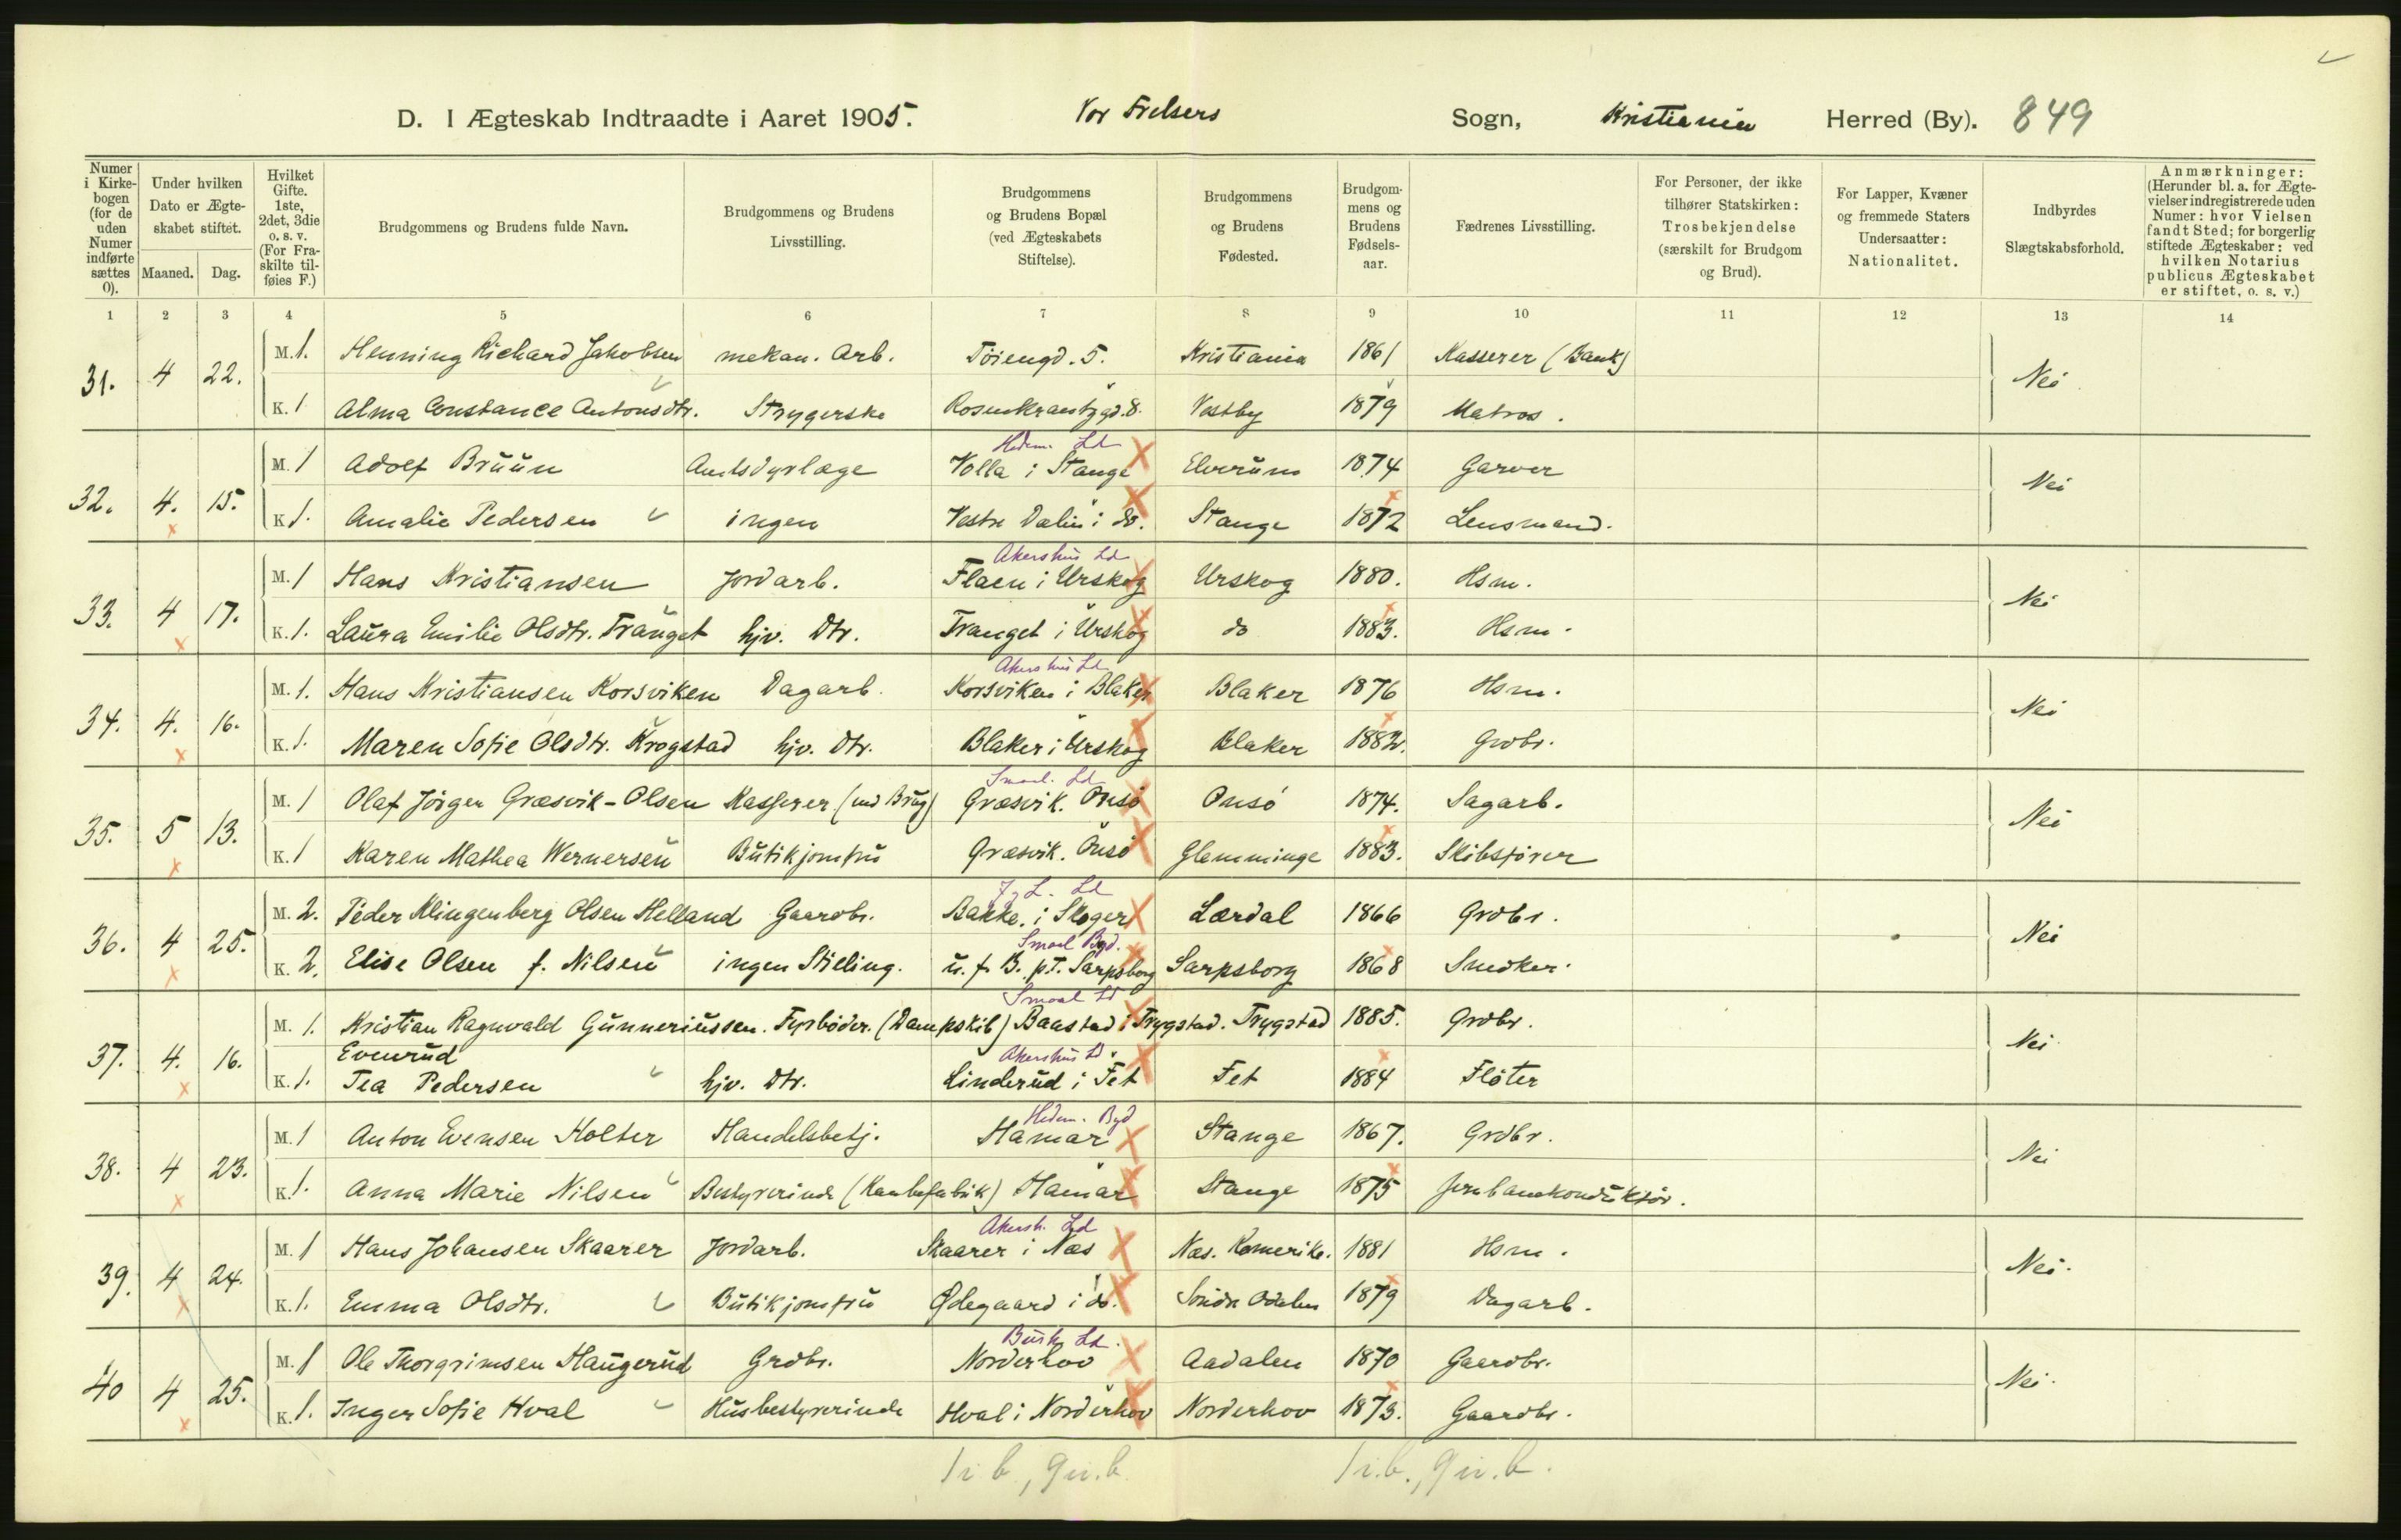 D. I Ægteskab Indtraadte i Aaret 1905. Vor Frelsers Sogn, Kristiania Herred (By). 849
Numer i Kirkebogen (for de uden Numer indførte sættes 0).
Under hvilken Dato er Ægteskabet stiftet.
Maaned. Dag.
Hvilket Gifte. 1ste, 2det, 3die o. s. v. (For Fraskilte tilføies F.)
Brudgommens og Brudens fulde Navn.
Brudgommens og Brudens Livsstilling.
Brudgommens og Brudens Bopæl (ved Ægteskabets Stiftelse).
Brudgommens og Brudens Fødested.
Brudgommens og Brudens Fødselsaar.
Fædrenes Livsstilling.
For Personer, der ikke tilhører Statskirken: Trosbekjendelse (særskilt for Brudgom og Brud).
For Lapper, Kvæner og fremmede Staters Undersaatter: Nationalitet.
Indbyrdes Slægtskabsforhold.
Anmærkninger: (Herunder bl. a. for Ægtevielser indregistrerede uden Numer: hvor Vielsen fandt Sted; for borgerlig stiftede Ægteskaber: ved hvilken Notarius publicus Ægteskabet er stiftet, o. s. v.)
1 2 3 4 5 6 7 8 9 10 11 12 13 14
31. 4 22. M. 1. Henning Richard Jakobsen mekan. Arb. Töiengd. 5. Kristiania 1861 Kasserer (Bank) Nei
K. 1 Alma Constance Antonsdtr. Strygerske Rosenkrantzgd. 8. Vestby 1879 Matros.
Hedm. Ld
32. 4. 15. M. 1 Adolf Bruun Amtsdyrlæge Volla i Stange Elverum 1874 Garver Nei
K. 1. Amalie Pedersen ingen Vestre Dalin i do. Stange 1872 Lensmand.
Akershus Ld
33. 4 17. M. 1 Hans Kristiansen Jordarb. Flaen i Urskog Urskog 1880. Hsm. Nei
K. 1. Laura Emilie Olsdtr. Tranget hjv. Dtr. Tranget i Urskog do 1883. Hsm.
Akershus Ld
34. 4. 16. M. 1. Hans Kristiansen Korsviken Dagarb. Korsviken i Blaker Blaker 1876 Hsm. Nei
K. 1. Maren Sofie Olsdtr. Krogstad hjv. Dtr. Blaker i Urskog Blaker 1882. Grdbr.
Smaal. Ld
35. 5 13. M. 1 Olaf Jörgen Græsvik-Olsen Kasserer (ved Brug) Græsvik. Onsö Onsö 1874. Sagarb. Nei
K. 1 Karen Mathea Wernersen Butikjomfru Græsvik. Onsö Glemminge 1883. Skibsförer
J. L. Ld
36. 4 25. M. 2. Peder Klingenberg Olsen Helland Gaardbr. Bakke. i Skoger Lærdal 1866 Grdbr. Nei
Smaal Byd.
K. 2. Elise Olsen f. Nilsen ingen Stilling. u. f. B. p.T. Sarpsborg Sarpsborg 1868 Snedker.
Smaal Ld
37. 4. 16. M. 1. Kristian Ragnvald Gunneriussen. Fyrböder. (Dampskib) Baastad i Trygstad. Trygstad 1885. Grdbr. Nei
Evenrud
Akershus Ld.
K. 1. Tea Pedersen hjv. Dtr. Linderud i Fet Fet 1884 Flöter
Hedm. Byd
38. 4 23. M. 1 Anton Evensen Holter Handelsbetj. Hamar Stange 1867. Grdbr. Nei
K. 1. Anna Marie Nilsen Bestyrerinde (Kaabefabrik) Hamar Stange 1875 Jernbanekonduktör.
Akersh. Ld
39. 4 24. M. 1 Hans Johansen Skaarer Jordarb. Skaarer i Næs Næs. Romerike. 1881 Hsm. Nei.
K. 1. Emma Olsdtr. Butikjomfru Ødegaard i do. Söndre Odalen 1879 Dagarb.
Busk. Ld.
40 4 25. M. 1 Ole Thorgrimsen Haugerud Grdbr. Norderhov Aadalen 1870 Gaardbr. Nei.
K. 1. Inger Sofie Hval Husbestyrerinde Hval i Norderhov Norderhov 1873. Gaardbr.
1 i. b., 9 u. b. 1 i. b., 9 u. b.